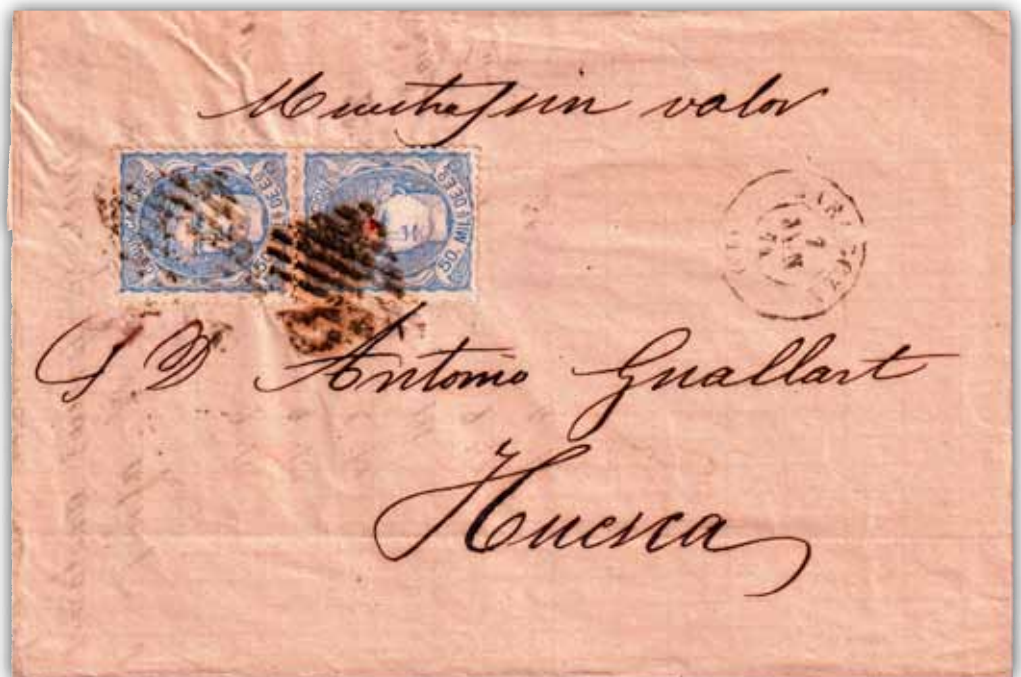 Muestra sin valor
50. MILS DE EO.
50. MILS DE EO.
S D Antonio Guallart
Huesca